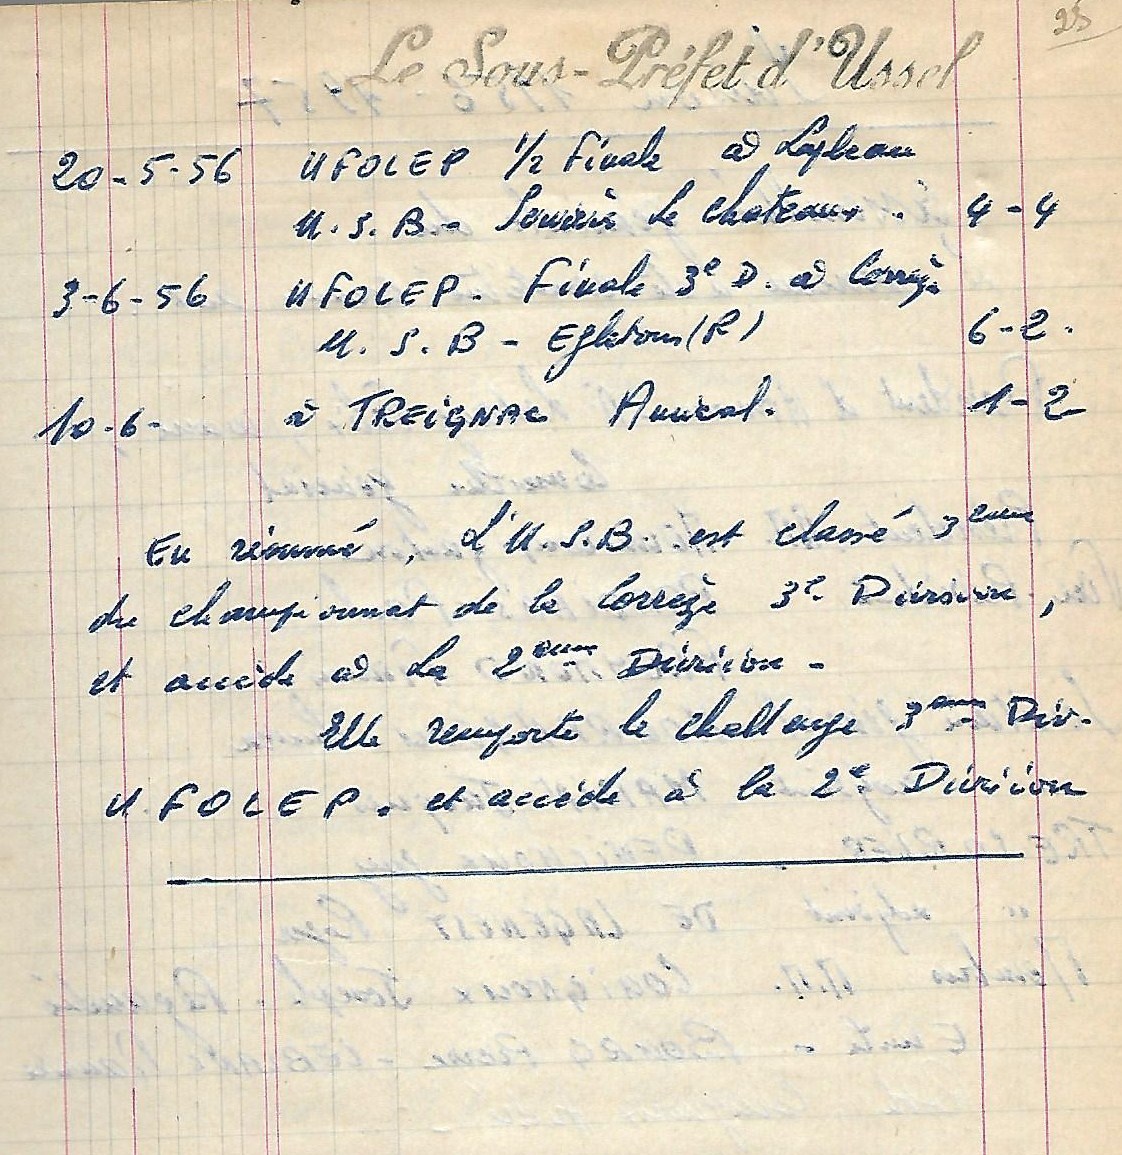 25
Le Sous-Préfet d'Ussel
20-5-56 UFOLEP 1/2 Finale à Lapleau
U.S.B - le chateaux. 4-4
3-6-56 UFOLEP. Finale 3e D. à Corrèze
U.S.B - Egletons (R) 6-2.
10-6- à TREIGNAC Amical. 1-2
En résumé, L'U.S.B. est classé 3eme
du championnat de la Corrèze 3e Division,
et accède à la 2eme Division -
Elle remporte le challenge 3eme Div.
UFOLEP. et accède à la 2e Division